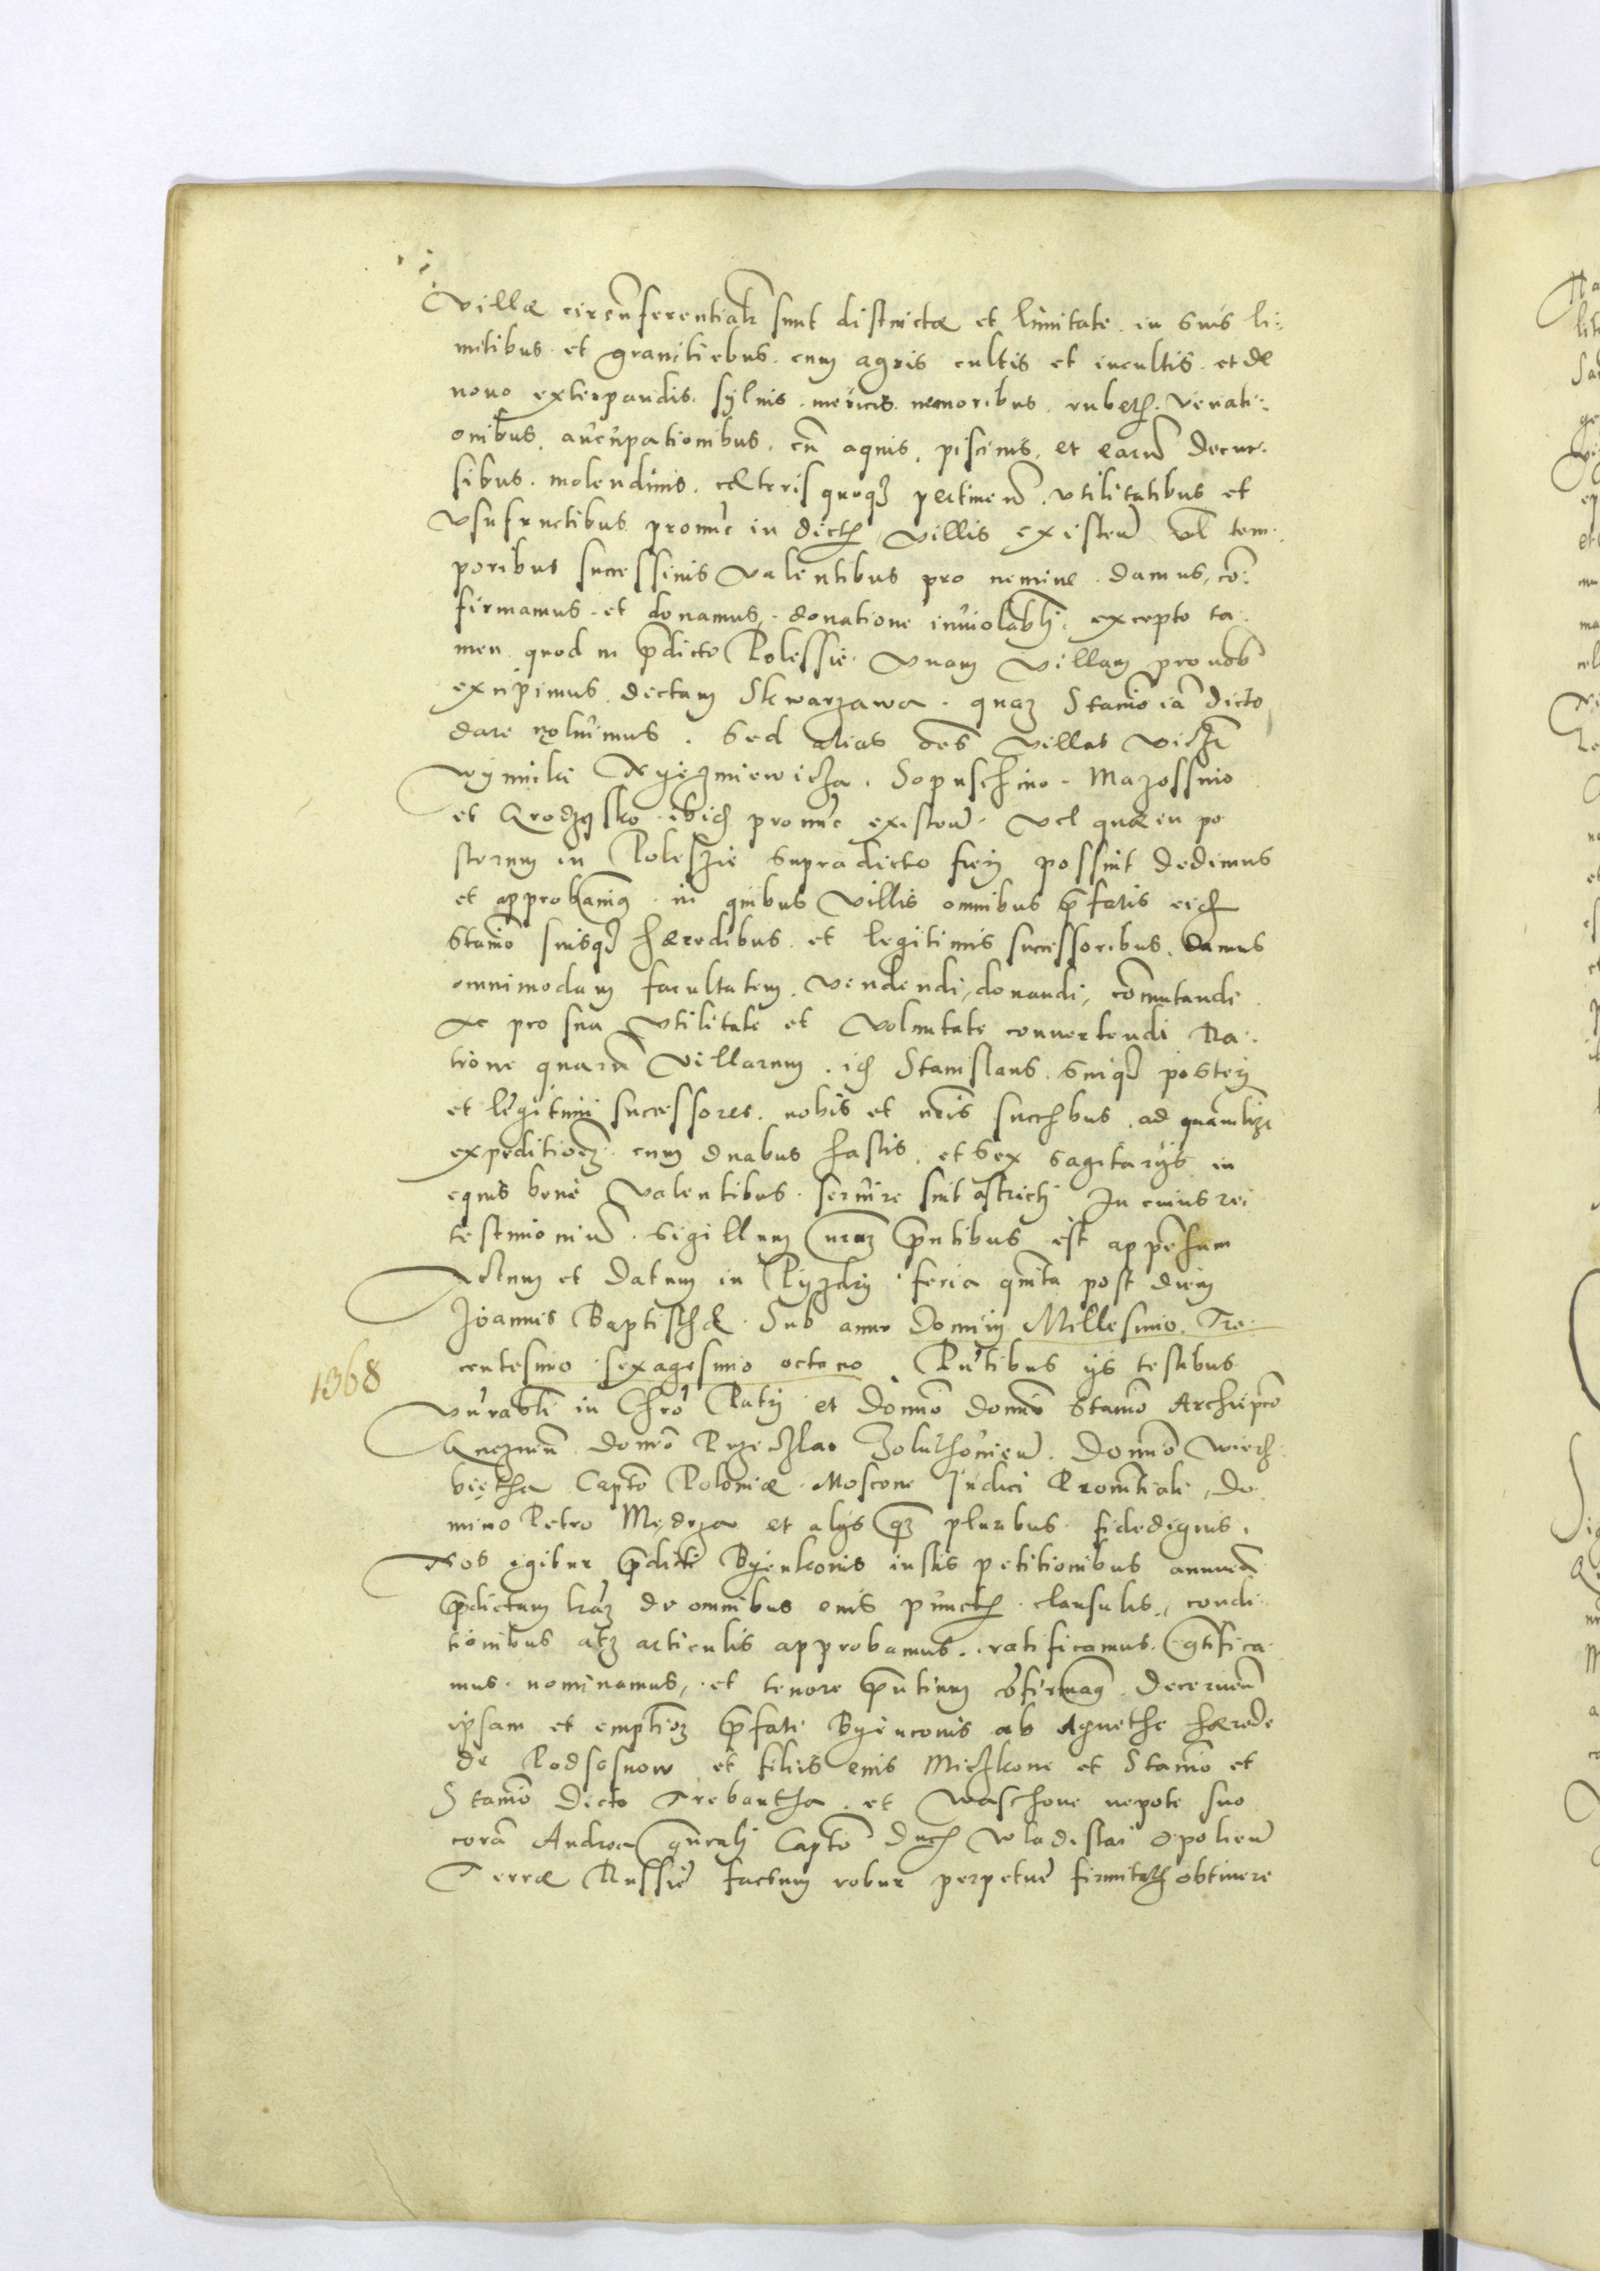 villæ circũferentialr sunt districtæ et limitate in suis li:
mitibus et granitiebus cum agris cultis et incultis et de
nouo exterpandis syluis mericis nemoribus rubetɥ venati:
onibus aucupationibus cũ aquis piscinis et earũ decur
sibus molendinis cæteris quoqȝ pertinenũ vtilitatibus et
vsufructibus pronũc in dictɥ villis existeũ vl tem
poribus successiuis valentibus pro nemine damus cõ:
firmamus et donamus donatione inuiolabli excepto ta
men quod in p̃dicto Polessie vnam villam pro nob̃
excipimus dictam Skwarzawa quaȝ Stanio iã dicto
dare noluimus Sed alias oẽs villas
Sopuschino Mazossino
et Grodzysko ibiɥ pronũc existeũ vel quæ in po
sterum in Poleszie supradicto fieri possint dedimus
et approbamus in quibus villis omnibus p̃fatis eiɥ
Stanio suisqȝ hæredibus et legitimis successoribus damus
omnimodam facultatem vendendi, donandi, cõmutandi
Ac pro sua vtilitate et voluntate conuertendi Ra
tione quarũ villarum iɥ Stanislaus suiqȝ posteri
et legitimi successores nobis et nr̃is succɥbus ad quamlizt
expeditioeȝ cum duabus hastis et sex sagitarijs in
equis bene valentibus seruire sint astricti In cuius rei
testimoniũ sigillum nr̃um p̃ntibus est appensum
Actum et datum in Pyzdri feria quinta post diem
Joannis Baptisthæ Sub anno domini Millesimo Tre
1368 centesimo sexagesimo octauo Pñtibus ijs testibus
vñrabli in Chro Patri et domio domio Stanio Archiepco
Gneznen̄ domio Przeczlao domio Wierz
bietha Capto Poloniæ Moscone Judici do
mino Petro Medrza et alijs qȝ pluribus fidedignis
Nos igitur p̃dicti Byenkonis iustis petitionibus annuen̄
p̃dictum lr̃aȝ de omnibus eius punctɥ clausulis, condi
tionibus atqȝ articulis approbamus ratificamus gr̃tifica
mus nominamus, et tenore p̃ntium cõfirmamus decernen̄
ipsam et emptioȝ p̃fati Byenconis ab Agnethe hærede
de Podsosnow et filiis eius Miczkone et Stanio et
Stanio dicto Trebantha et Waschone nepote suo
corã Andrea gñrali Capto ducɥ Wladislai Opolien̄
Terræ Russiæ factum robur perpetuæ firmitatɥ obtinere